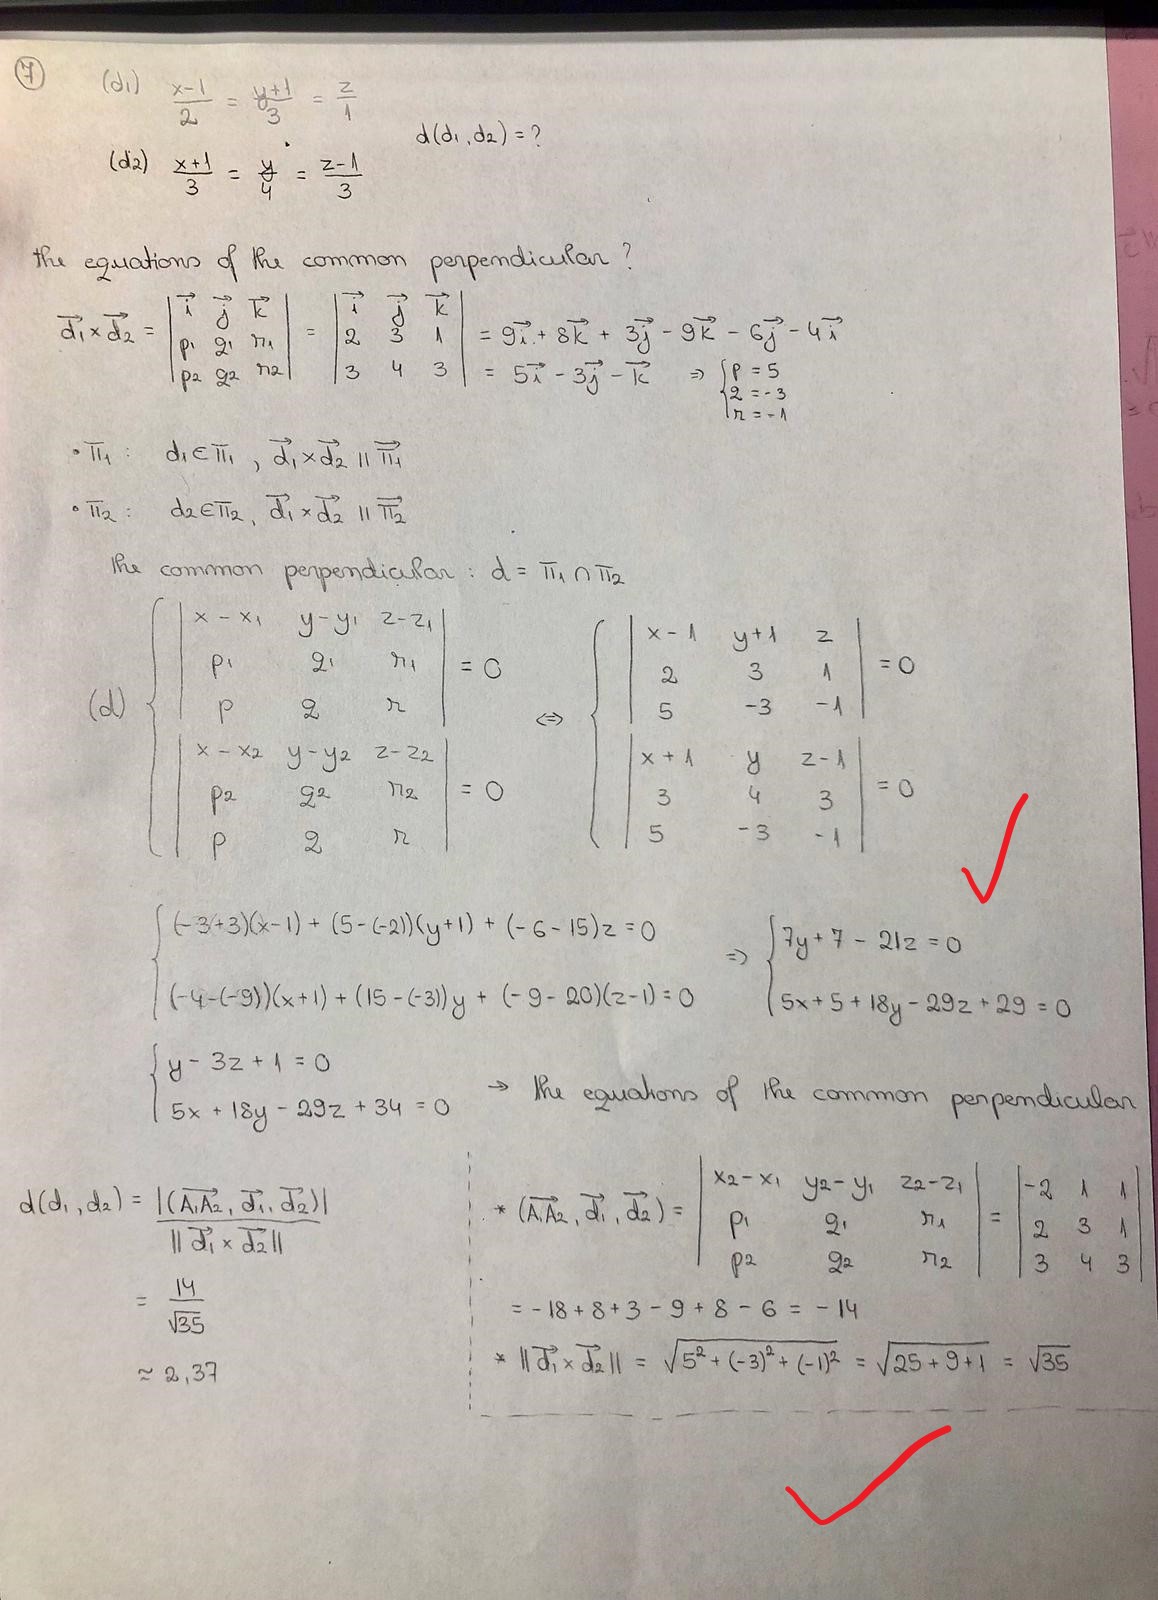 7
(d1) x-1/2 = y+1/3 = z/1
d(d1,d2) = ?
(d2) x+1/3 = y/4 = z-1/3
the equations of the common perpendicular?
d⃗1 × d⃗2 = | i⃗ j⃗ k⃗ ; p1 q1 r1 ; p2 q2 r2 | = | i⃗ j⃗ k⃗ ; 2 3 1 ; 3 4 3 | = 9i⃗ + 8k⃗ + 3j⃗ - 9k⃗ - 6j⃗ - 4i⃗
= 5i⃗ - 3j⃗ - k⃗ ⇒ { p = 5 ; q = -3 ; r = -1
• π1 : d1 ∈ π1 , d⃗1 × d⃗2 || π⃗1
• π2 : d2 ∈ π2, d⃗1 × d⃗2 || π⃗2
the common perpendicular : d = π1 ∩ π2
(d) { | x - x1 y - y1 z - z1 ; p1 q1 r1 ; p q r | = 0 ; | x - x2 y - y2 z - z2 ; p2 q2 r2 ; p q r | = 0 ⇔ { | x - 1 y+1 z ; 2 3 1 ; 5 -3 -1 | = 0 ; | x + 1 y z - 1 ; 3 4 3 ; 5 -3 -1 | = 0
{ (-3+3)(x-1) + (5-(-2))(y+1) + (-6-15)z = 0 ⇒ { 7y + 7 - 21z = 0
(-4-(-9))(x+1) + (15-(-3))y + (-9-20)(z-1) = 0 5x + 5 + 18y - 29z + 29 = 0
{ y - 3z + 1 = 0
5x + 18y - 29z + 34 = 0 → the equations of the common perpendicular
d(d1, d2) = |(A1A2, d⃗1, d⃗2)| / || d⃗1 × d⃗2 ||
= 14/√35
≈ 2,37
* (A1A2, d⃗1, d⃗2) = | x2 - x1 y2 - y1 z2 - z1 ; p1 q1 r1 ; p2 q2 r2 | = | -2 1 1 ; 2 3 1 ; 3 4 3 |
= -18 + 8 + 3 - 9 + 8 - 6 = -14
* || d⃗1 × d⃗2 || = √(5² + (-3)² + (-1)²) = √(25 + 9 + 1) = √35